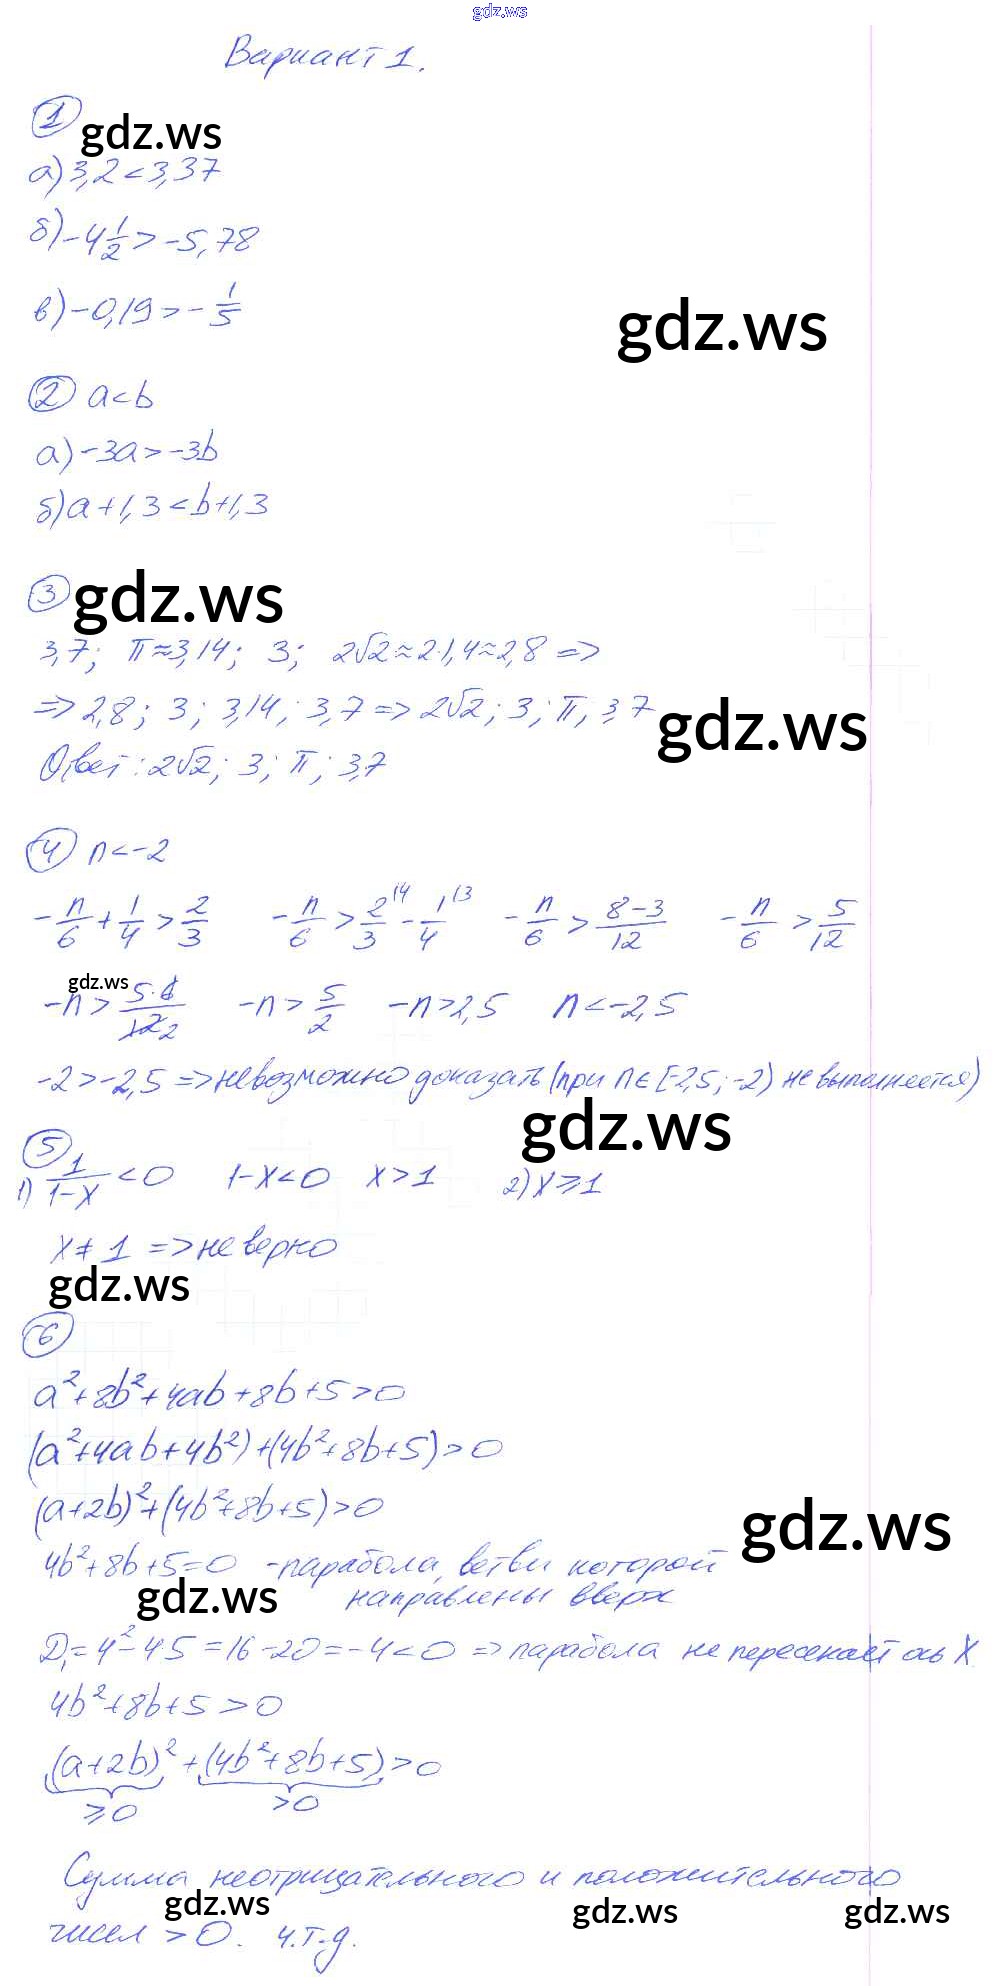 gdz.ws
Вариант 1.
1 gdz.ws
а) 3,2 < 3,37
б) -4 1/2 > -5,78
в) -0,19 > - 1/5
gdz.ws
2 a < b
а) -3a > -3b
б) a + 1,3 < b + 1,3
3 gdz.ws
3,7; π ≈ 3,14; 3; 2√2 ≈ 2·1,4 ≈ 2,8 =>
=> 2,8; 3; 3,14; 3,7 => 2√2; 3; π; 3,7 gdz.ws
Ответ: 2√2; 3; π; 3,7
4 n < -2
- n/6 + 1/4 > 2/3   - n/6 > 2/3 \4 - 1/4 \3   - n/6 > 8-3/12   - n/6 > 5/12
gdz.ws
-n > 5·6/12 2   -n > 5/2   -n > 2,5   n < -2,5
-2 > -2,5 => невозможно доказать (при n ∈ [-2,5; -2) не выполняется)
gdz.ws
5
1) 1/1-x < 0   1-x < 0   x > 1   2) x ⩾ 1
x ≠ 1 => не верно
gdz.ws
6
a² + 8b² + 4ab + 8b + 5 > 0
(a² + 4ab + 4b²) + (4b² + 8b + 5) > 0
(a + 2b)² + (4b² + 8b + 5) > 0
gdz.ws
4b² + 8b + 5 = 0 - парабола, ветви которой
gdz.ws направлены вверх
D₁ = 4² - 4·5 = 16 - 20 = -4 < 0 => парабола не пересекает ось X
4b² + 8b + 5 > 0
(a + 2b)² + (4b² + 8b + 5) > 0
⩾ 0   > 0
Сумма неотрицательного и положительного
gdz.ws gdz.ws gdz.ws
чисел > 0. ч.т.д.